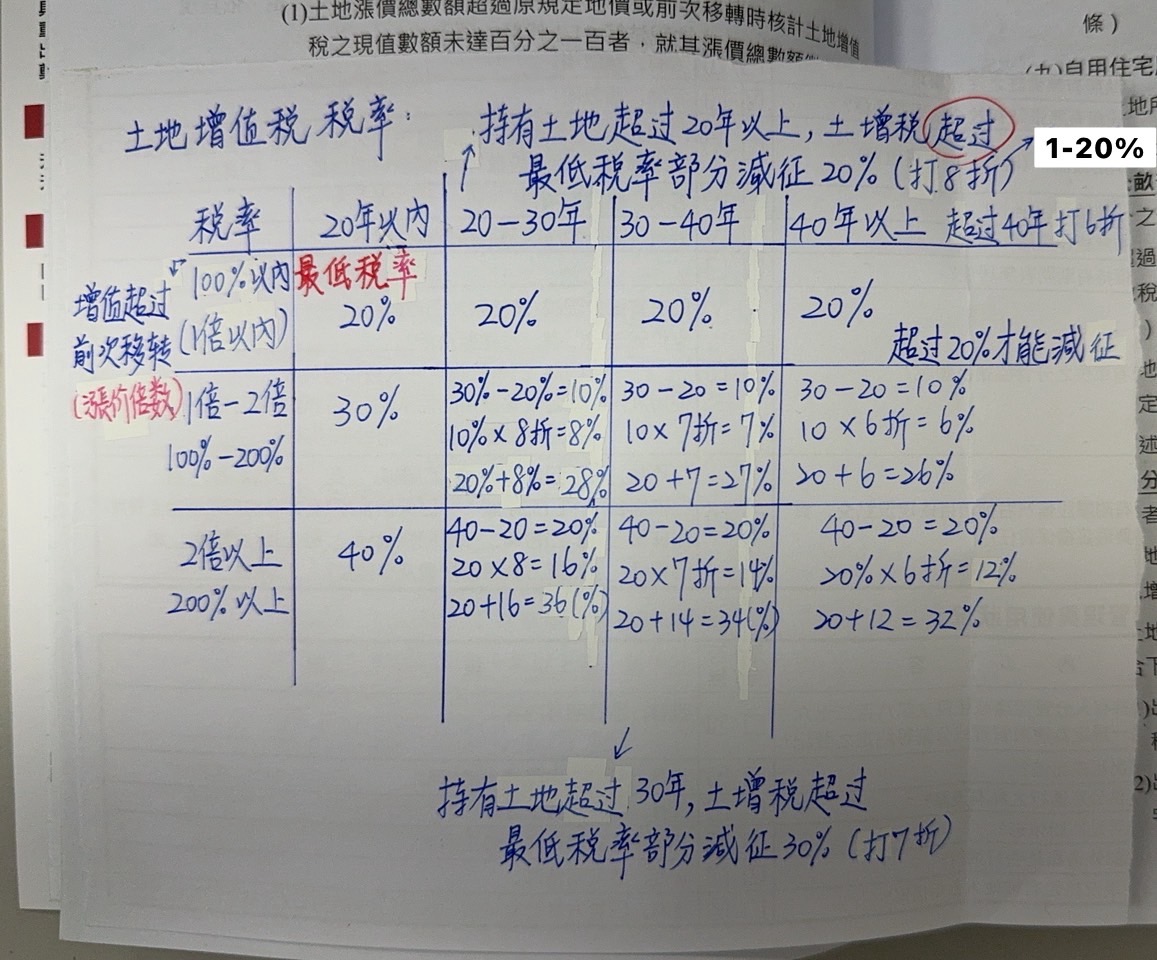 (1)土地漲價總數額超過原規定地價或前次移轉時核計土地增值
稅之現值數額未達百分之一百者，就其漲價總數額
條）
(九)自用住宅
土地增值税 税率：
持有土地超过20年以上，土增税超过
1-20%
最低税率部分減征20%（打8折）
税率 20年以內 20－30年 30－40年 40年以上 超过40年打6折
增值超过
前次移转
(漲价倍数)
100%以內
(1倍以內)
最低税率
20%
20%
20%
20%
超过20%才能減征
1倍－2倍
100%－200%
30%
30%－20%=10%
10%×8折=8%
20%+8%=28%
30－20=10%
10×7折=7%
20+7=27%
30－20=10%
10×6折=6%
20+6=26%
2倍以上
200%以上
40%
40－20=20%
20×8=16%
20+16=36(%)
40－20=20%
20×7折=14%
20+14=34(%)
40－20=20%
20%×6折=12%
20+12=32%
持有土地超过30年，土增税超过
最低税率部分減征30%（打7折）